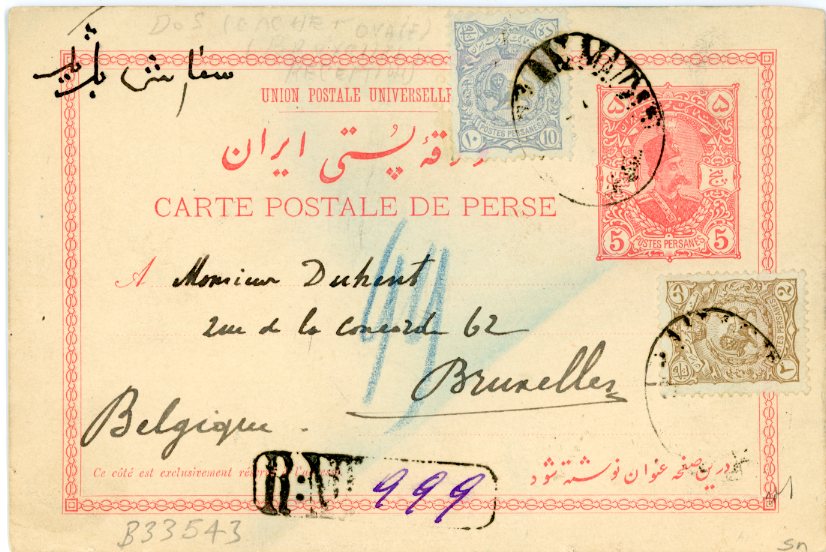 سفارشی
UNION POSTALE UNIVERSELLE
ورقهٔ پستی ایران
CARTE POSTALE DE PERSE
POSTES PERSANES
10
۵ ۵
5 POSTES PERSANES 5
A Monsieur Duhent
Rue de la Concorde 62
Bruxelles
Belgique
44
Ce côté est exclusivement réservé à l'adresse
درین صفحه عنوان نوشته شود
R: No 999
B33543
sn